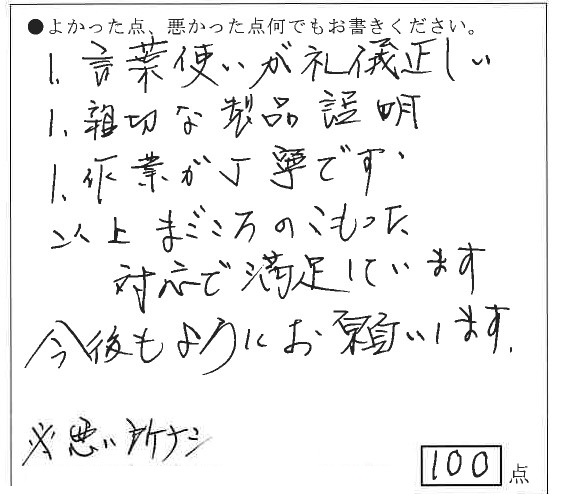 ●よかった点、悪かった点何でもお書きください。
1. 言葉使いが礼儀正しい
1. 親切な製品説明
1. 作業が丁寧です。
以上まごころのこもった
対応で満足しています
今後もよろしくお願いします。
※悪い所ナシ
100点